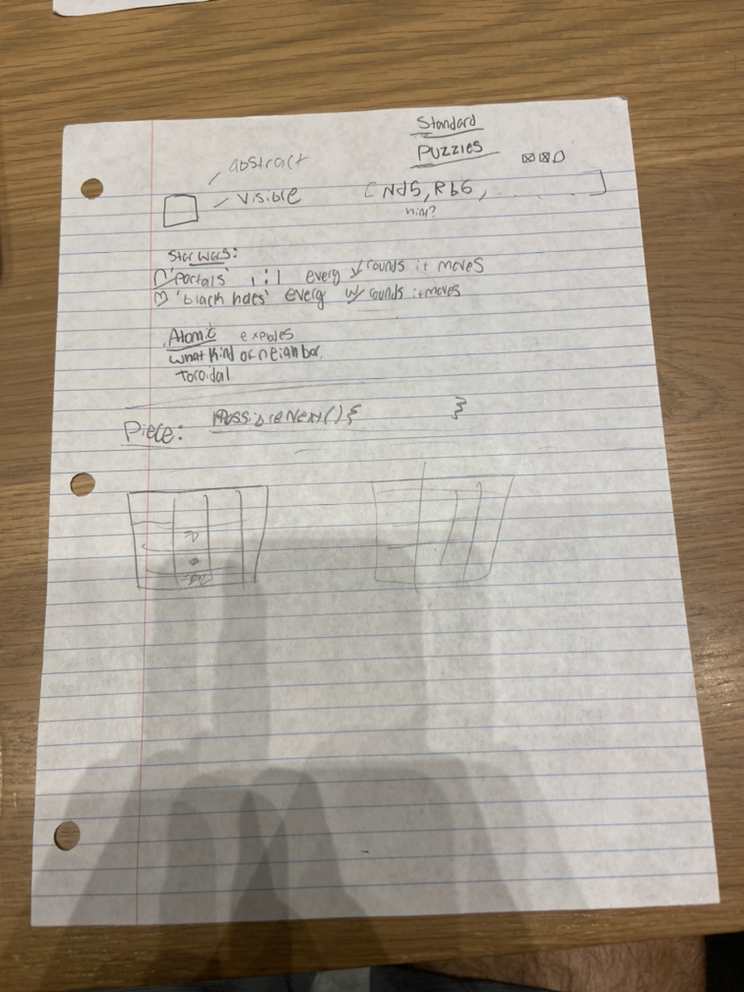 Standard
Puzzles
abstract
visible
[Nd5, Rb6, ]
Star wars:
'Portals' 1:1 every rounds it moves
'black holes' every rounds it moves
Atomic explodes
what kind of neighbor
Toroidal
Piece: PossibleNext(){ }